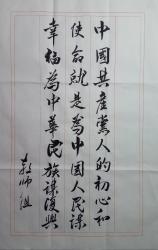 中國共產黨人的初心和
使命就是為中國人民謀
幸福為中華民族謀復興